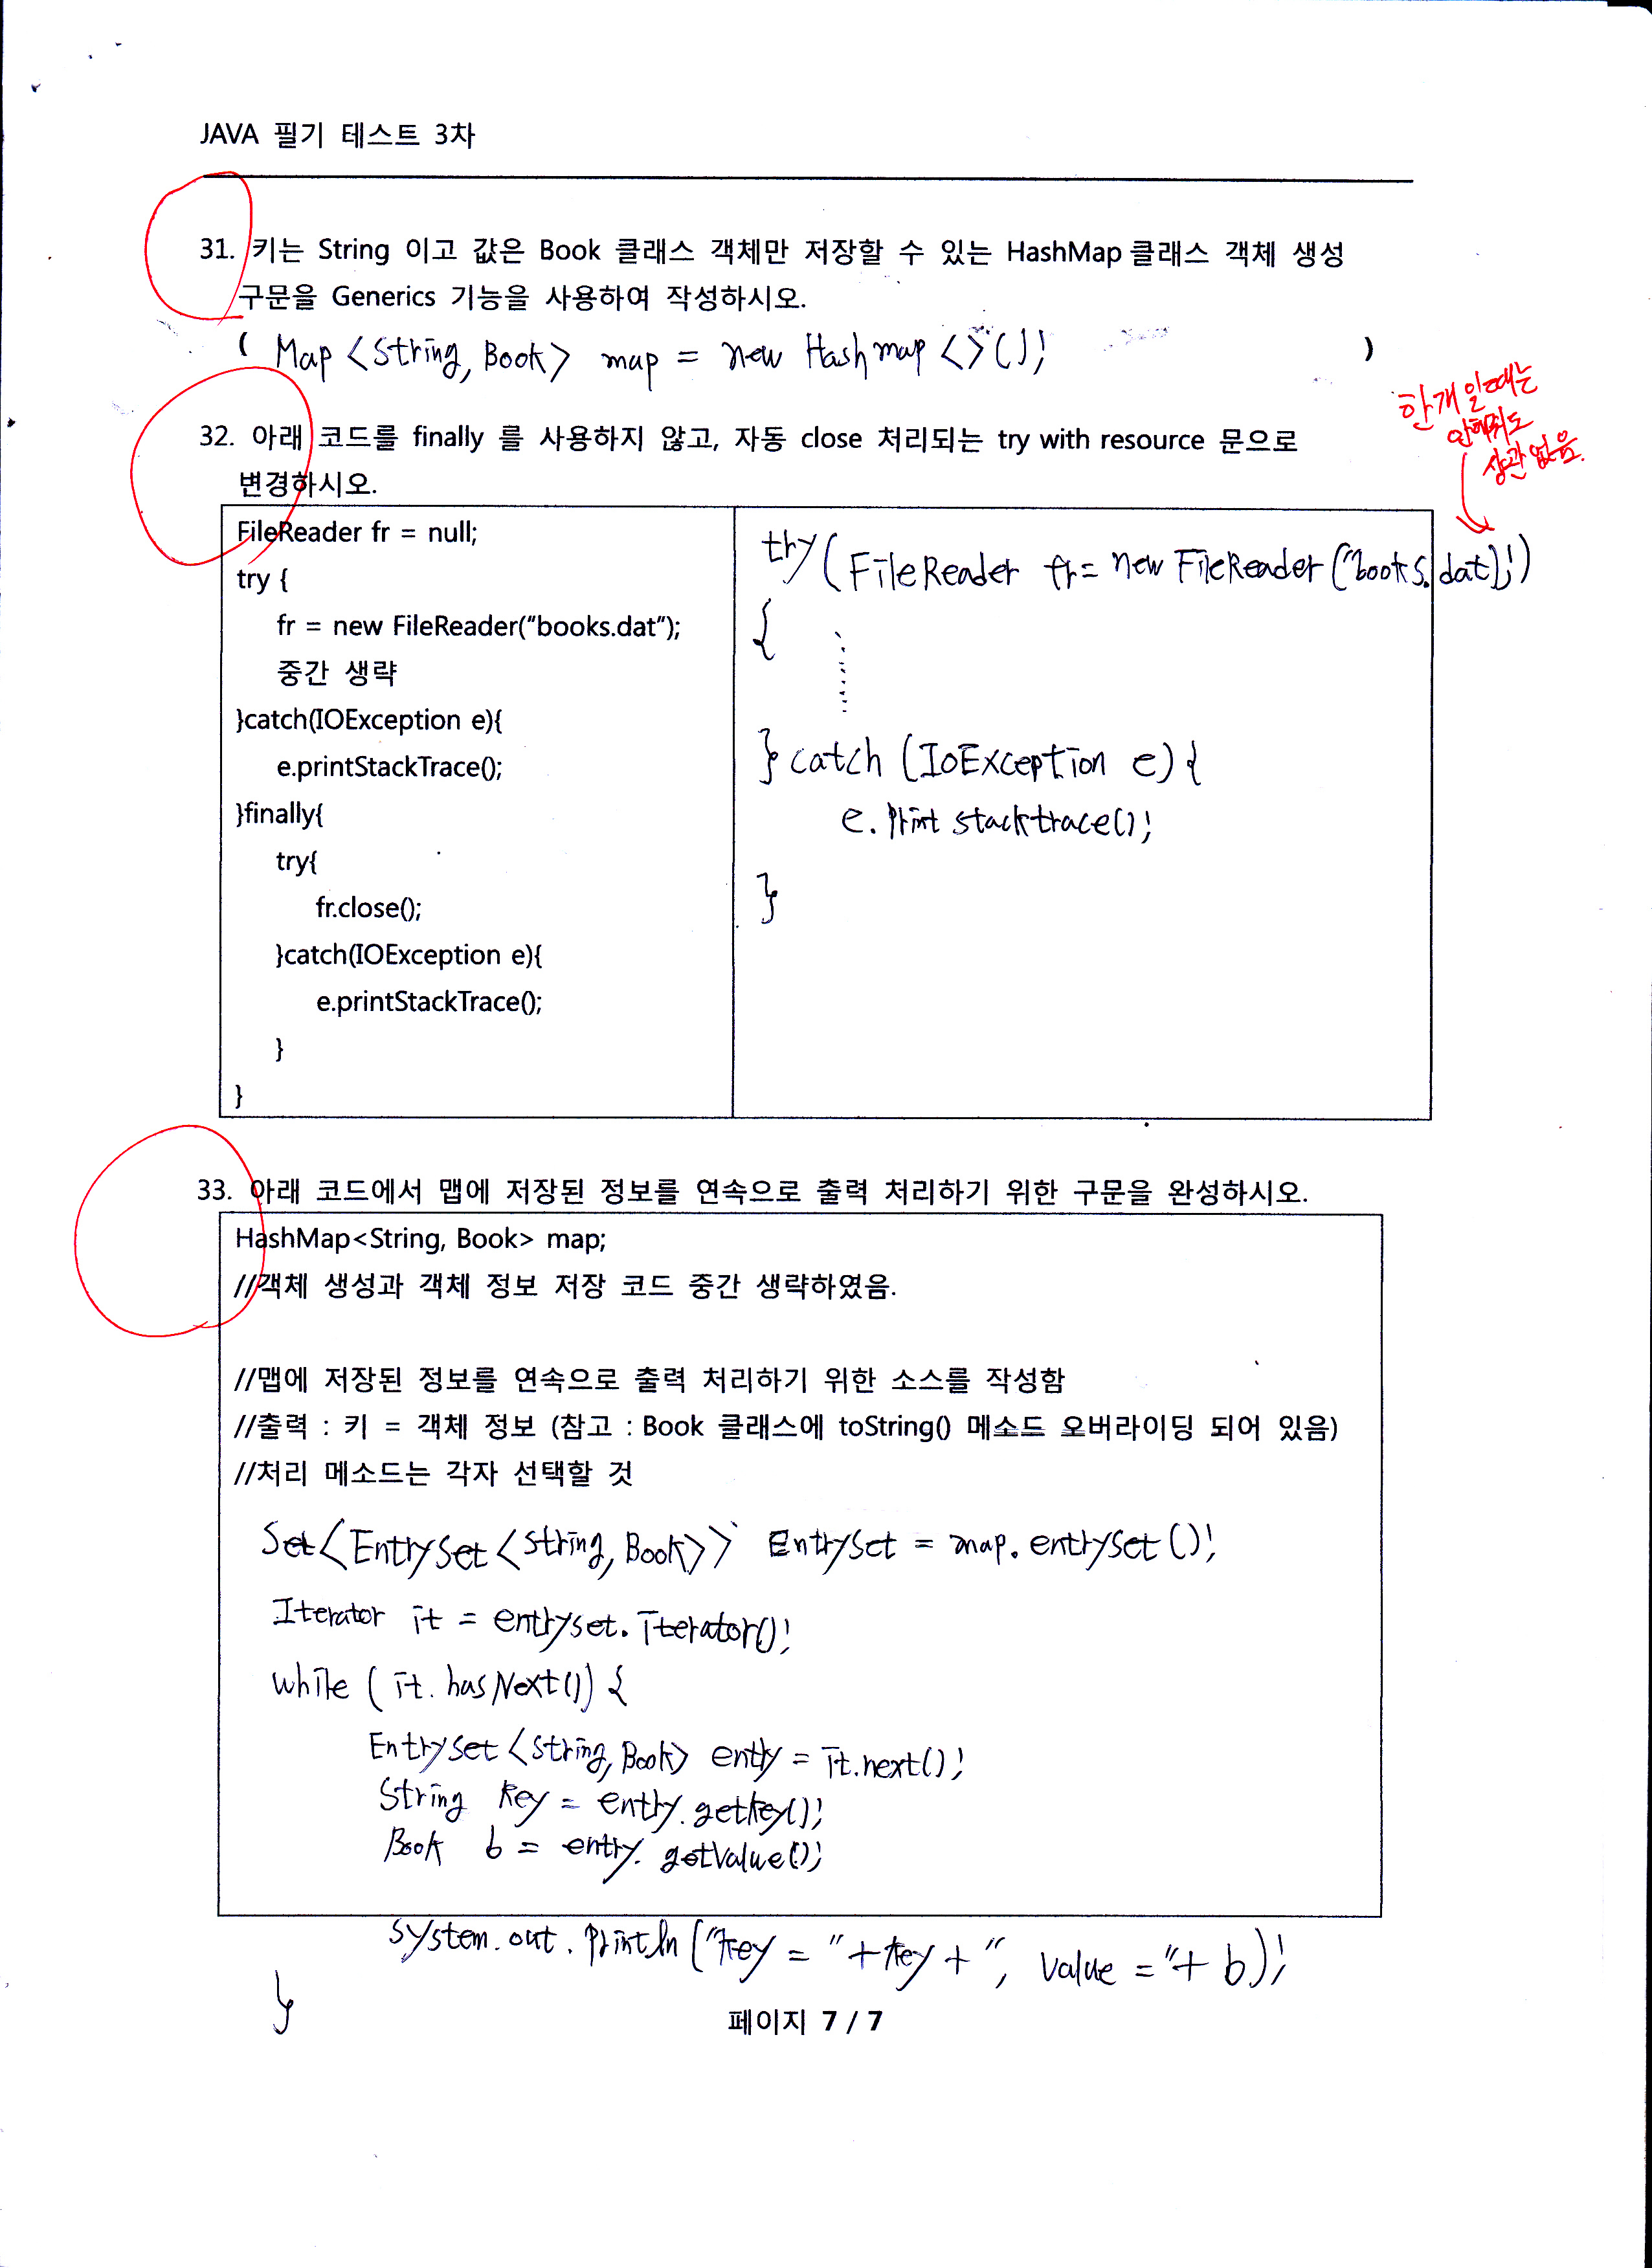 JAVA 필기 테스트 3차
31. 키는 String 이고 값은 Book 클래스 객체만 저장할 수 있는 HashMap 클래스 객체 생성
구문을 Generics 기능을 사용하여 작성하시오.
( Map <String, Book> map = new Hashmap <>(); )
한개일때는
안해줘도
상관없음.
32. 아래 코드를 finally 를 사용하지 않고, 자동 close 처리되는 try with resource 문으로
변경하시오.
FileReader fr = null;
try {
fr = new FileReader("books.dat");
중간 생략
}catch(IOException e){
e.printStackTrace();
}finally{
try{
fr.close();
}catch(IOException e){
e.printStackTrace();
}
}
try (FileReader fr = new FileReader("books.dat);)
{
} catch (IoException e) {
e. print stacktrace();
}
33. 아래 코드에서 맵에 저장된 정보를 연속으로 출력 처리하기 위한 구문을 완성하시오.
HashMap<String, Book> map;
//객체 생성과 객체 정보 저장 코드 중간 생략하였음.
//맵에 저장된 정보를 연속으로 출력 처리하기 위한 소스를 작성함
//출력 : 키 = 객체 정보 (참고 : Book 클래스에 toString() 메소드 오버라이딩 되어 있음)
//처리 메소드는 각자 선택할 것
Set<EntrySet<String, Book>> EntrySet = map. entrySet();
Iterator it = entryset. iterator();
while ( it. hasNext()) {
EntrySet <String, Book> entry = it.next();
String key = entry. getkey();
Book b = entry. getValue();
system. out. println ("key = " + key + ", value = " + b);
}
페이지 7 / 7